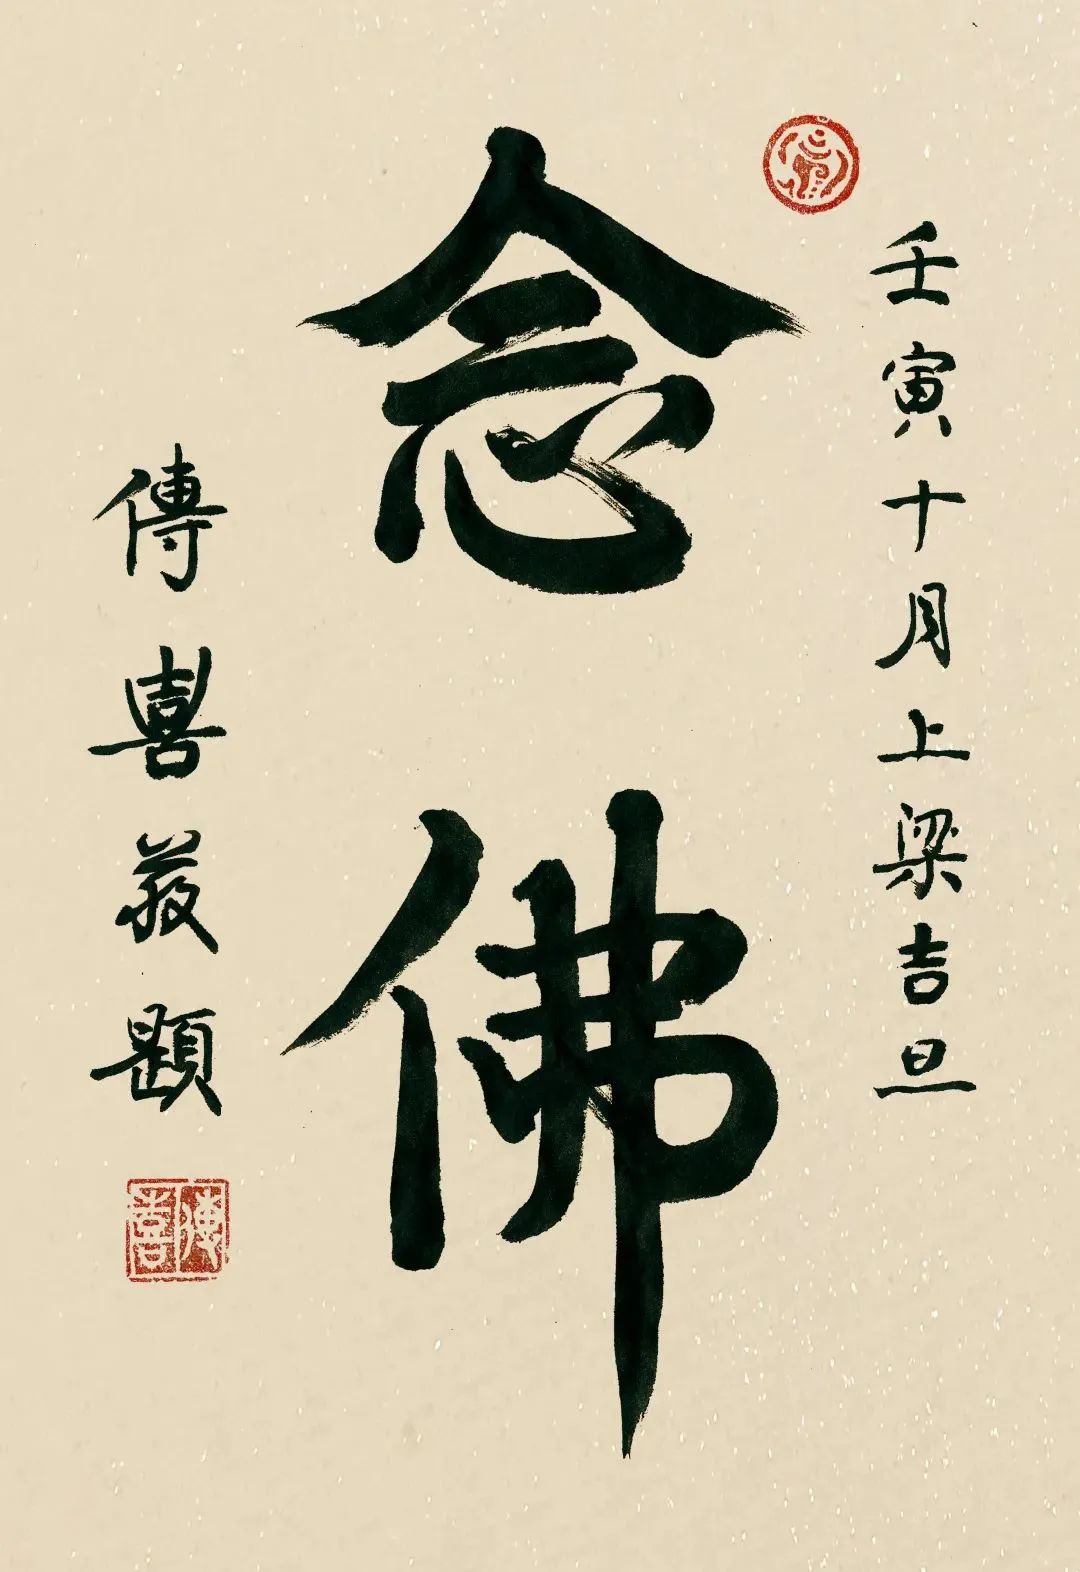 壬寅十月上梁吉旦
念佛
傳喜敬題
傳喜